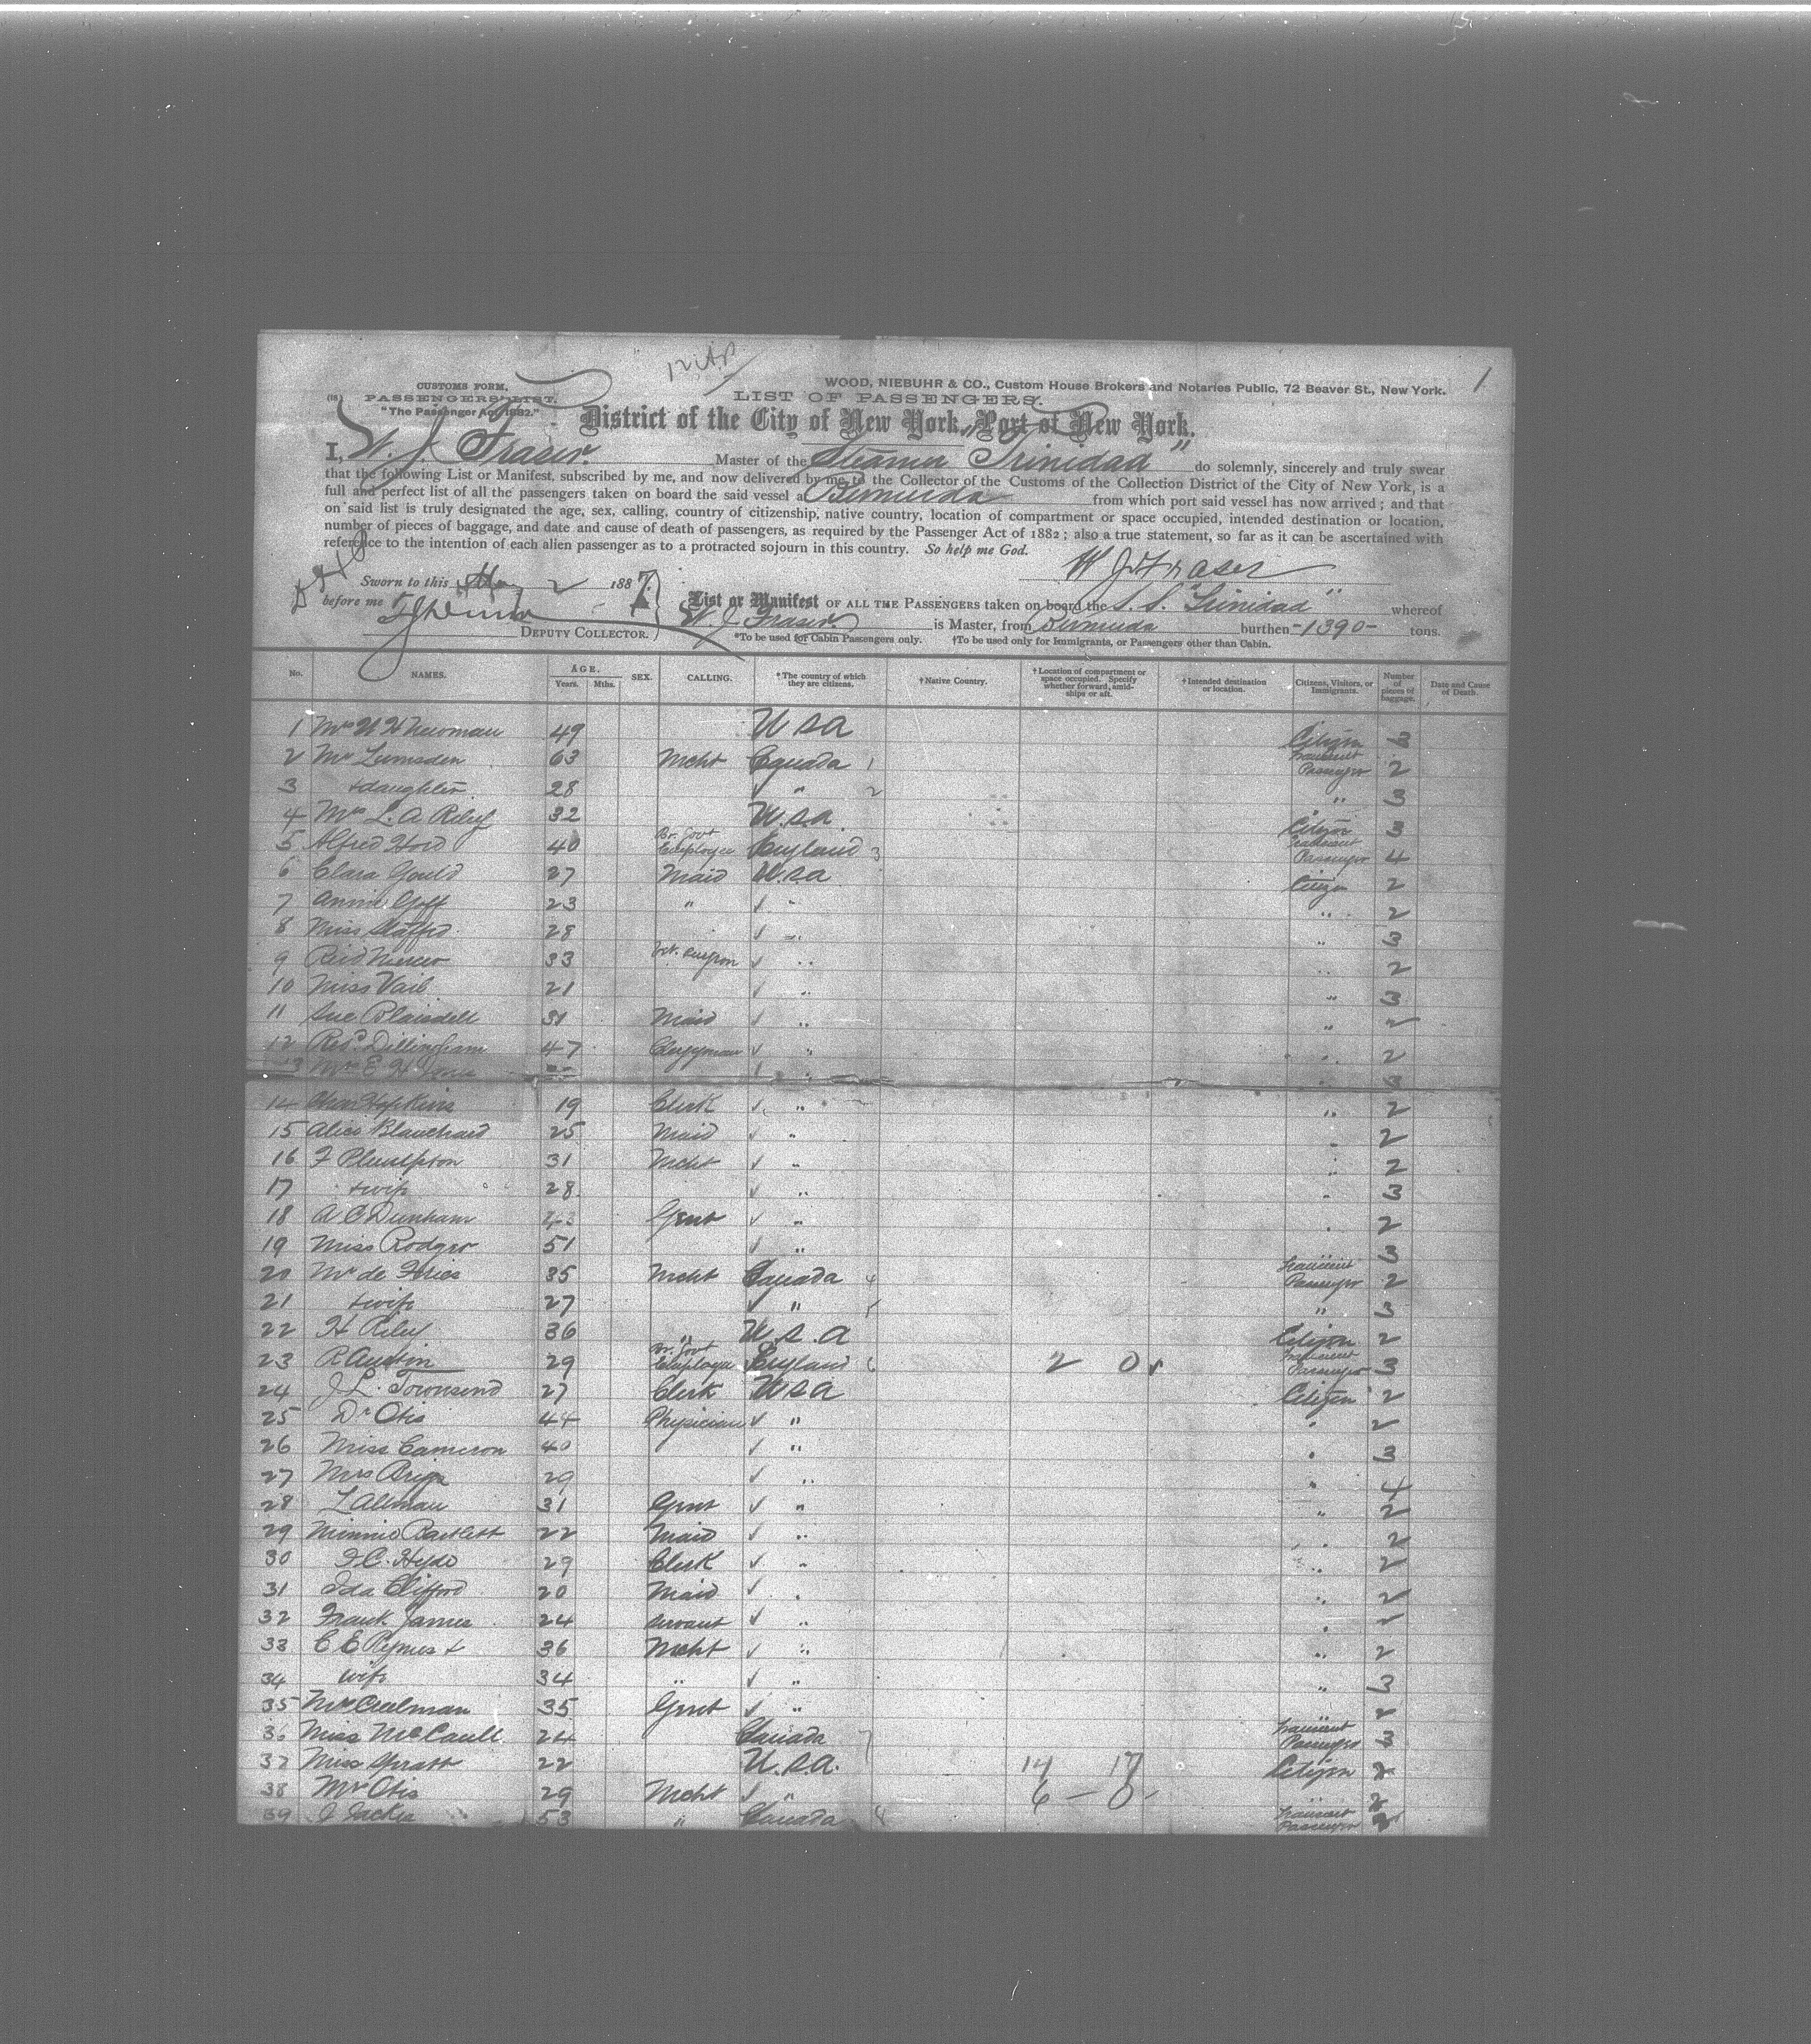 1
CUSTOMS FORM,
WOOD, NIEBUHR & CO., Custom House Brokers and Notaries Public, 72 Beaver St., New York.
PASSENGERS' LIST.
LIST OF PASSENGERS.
"The Passenger Act, 1882."
District of the City of New York, Port of New York.
I, W. J. Fraser. Master of the Steamer "Trinidad" do solemnly, sincerely and truly swear
that the following List or Manifest, subscribed by me, and now delivered by me to the Collector of the Customs of the Collection District of the City of New York, is a
full and perfect list of all the passengers taken on board the said vessel at Bermuda from which port said vessel has now arrived; and that
on said list is truly designated the age, sex, calling, country of citizenship, native country, location of compartment or space occupied, intended destination or location,
number of pieces of baggage, and date and cause of death of passengers, as required by the Passenger Act of 1882; also a true statement, so far as it can be ascertained with
reference to the intention of each alien passenger as to a protracted sojourn in this country. So help me God.
W J Fraser
Sworn to this May 2 1887.
before me
DEPUTY COLLECTOR.
List or Manifest OF ALL THE PASSENGERS taken on board the S. S. "Trinidad" whereof
W. J. Fraser. is Master, from Bermuda burthen -1390- tons.
*To be used for Cabin Passengers only. †To be used only for Immigrants, or Passengers other than Cabin.
No. NAMES. AGE. Years. Mths. SEX. CALLING. *The country of which they are citizens. †Native Country. †Location of compartment or space occupied. Specify whether forward, amidships or aft. †Intended destination or location. Citizens, Visitors, or Immigrants. Number of pieces of baggage. Date and Cause of Death.
1 Newman 49 USA Citizen 3
2 Mr Lumsden 63 Mcht Canada 1 Transient Passenger 2
3 + daughter 28 " 2 " 3
4 L. A. Riley 32 U.S.A. Citizen 3
5 Alfred Hord 40 Br. Govt Employee England 3 Transient Passenger 4
6 Clara Gould 27 Maid U.S.A Citizen 2
7 Annie Goff 23 " " " 2
8 Miss Stafford 28 " " 3
9 Reid 33 Vet. Surgeon " " 2
10 Miss Vail 21 " " 3
11 Sue Blaisdell 31 Maid " " 2
12 Revd. Dillingham 47 Clergyman " " 2
13 E H " " 3
14 Hopkins 19 Clerk " " 2
15 Alice Blanchard 25 Maid " " 2
16 F Plumpton 31 Mcht " " 2
17 + wife 28 " " 3
18 A C Dunham Gent " " 2
19 Miss Rodgers 51 " " 3
20 Mr de 35 Mcht Canada 4 Transient Passenger 2
21 + wife 27 " 5 " 3
22 H Riley 36 " U.S.A Citizen 2
23 R Austin 29 Br. Govt Employee England 6 2 0 Transient Passenger 3
24 J L. Townsend 27 Clerk USA Citizen 2
25 Dr Otis 44 Physician " " 2
26 Miss Cameron 40 " " 3
27 Mrs 29 " " 4
28 L Allman 31 Gent " " 2
29 Minnie Bartlett 22 Maid " " 2
30 F. C. Hyde 29 Clerk " " 2
31 Ida Clifford 20 Maid " " 2
32 Frank James 24 Servant " "
33 C E + 36 Mcht " " 2
34 wife 34 " " " 3
35 35 Gent " 2
36 Miss McCaull 24 Canada 7 Transient Passenger 3
37 Miss Pratt 22 U.S.A. 14 17 Citizen 2
38 Mr Otis 29 Mcht " 6 - 0 2
39 53 " Canada 8 Transient Passenger 2